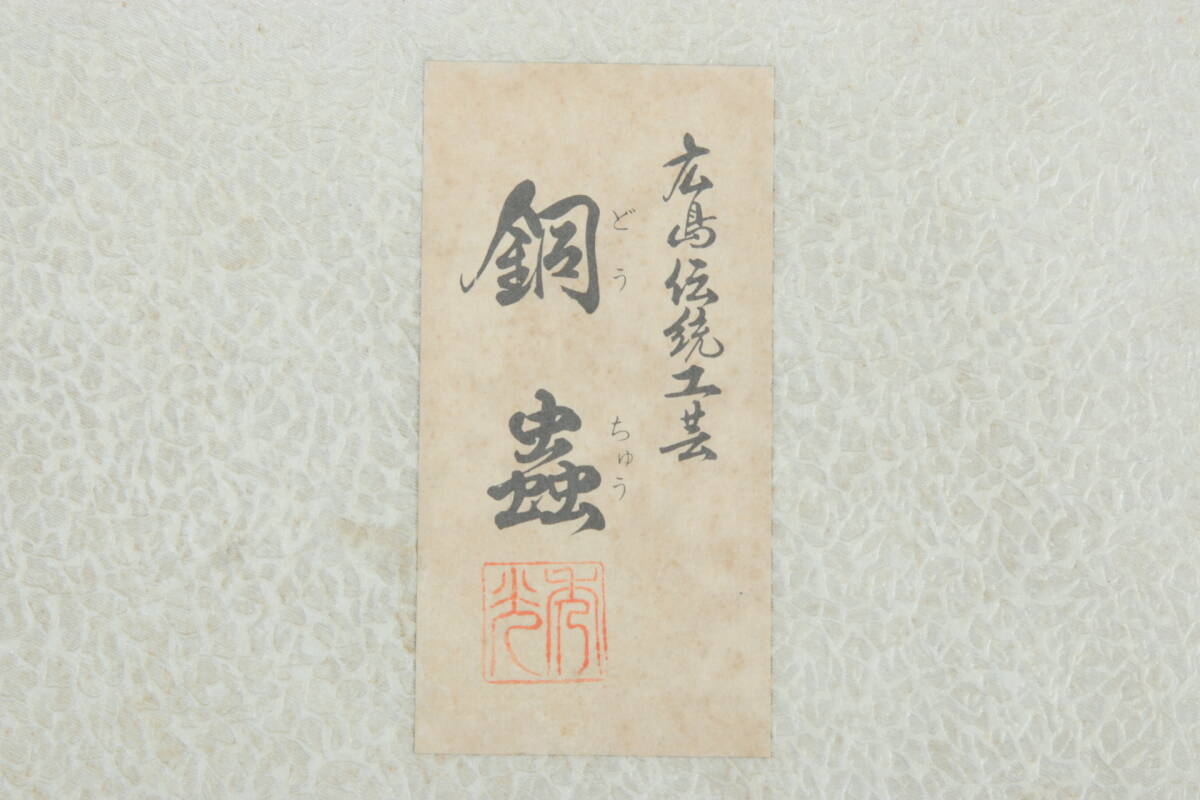 広島伝統工芸
銅蟲
どうちゅう
秀光